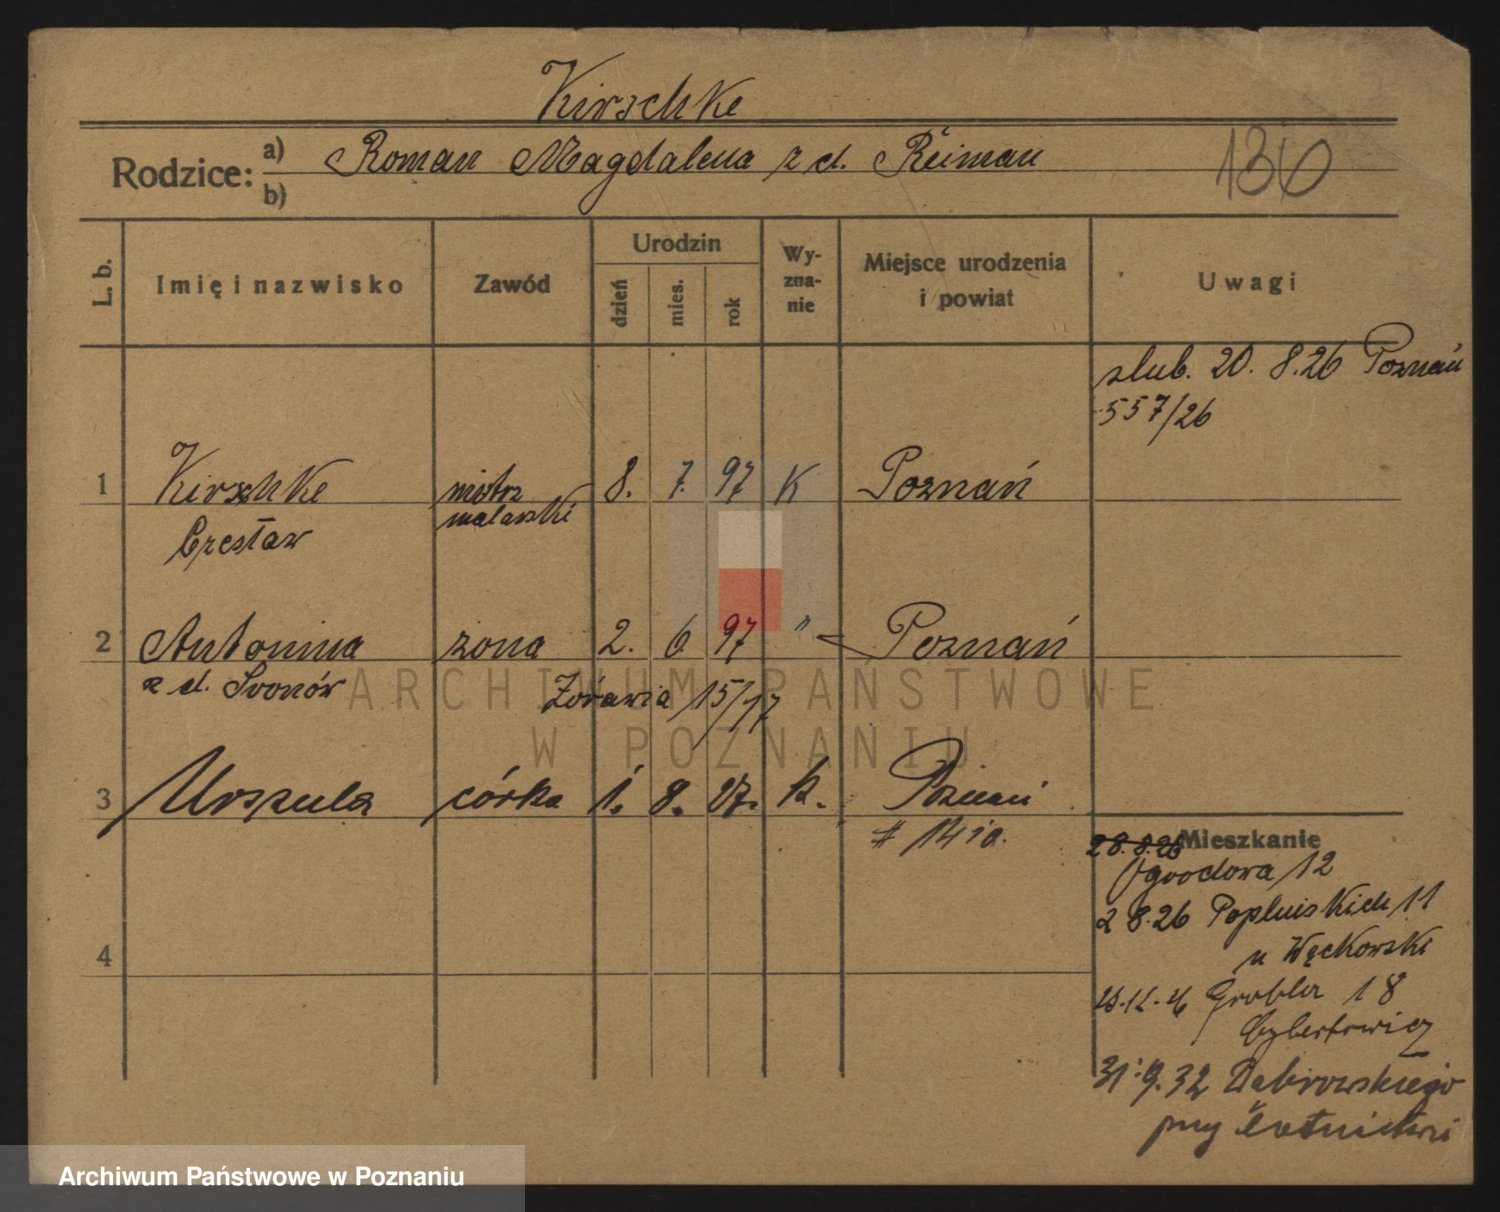 Kirschke
Rodzice: a) Roman Magdalena z d. Reiman
b)
130
L. b. Imię i nazwisko Zawód Urodzin dzień mies. rok Wyznanie Miejsce urodzenia i powiat Uwagi
ślub. 20. 8.26 Poznań
557/26
1 Kirschke mistrz 8. 7. 97 K Poznań
Czesław malarski
2 Antonina żona 2. 6 97 " Poznań
z d. Żórawia 15/17
3 Urszula córka 1. 8. 27. k. Poznań
Mieszkanie
28.8.26
Ogrodowa 12
2 8.26 Poplińskich 11
u Węckowski
Grobla 18
4
31.9.32 Dąbrowskiego
przy
ARCHIWUM PAŃSTWOWE
W POZNANIU
Archiwum Państwowe w Poznaniu